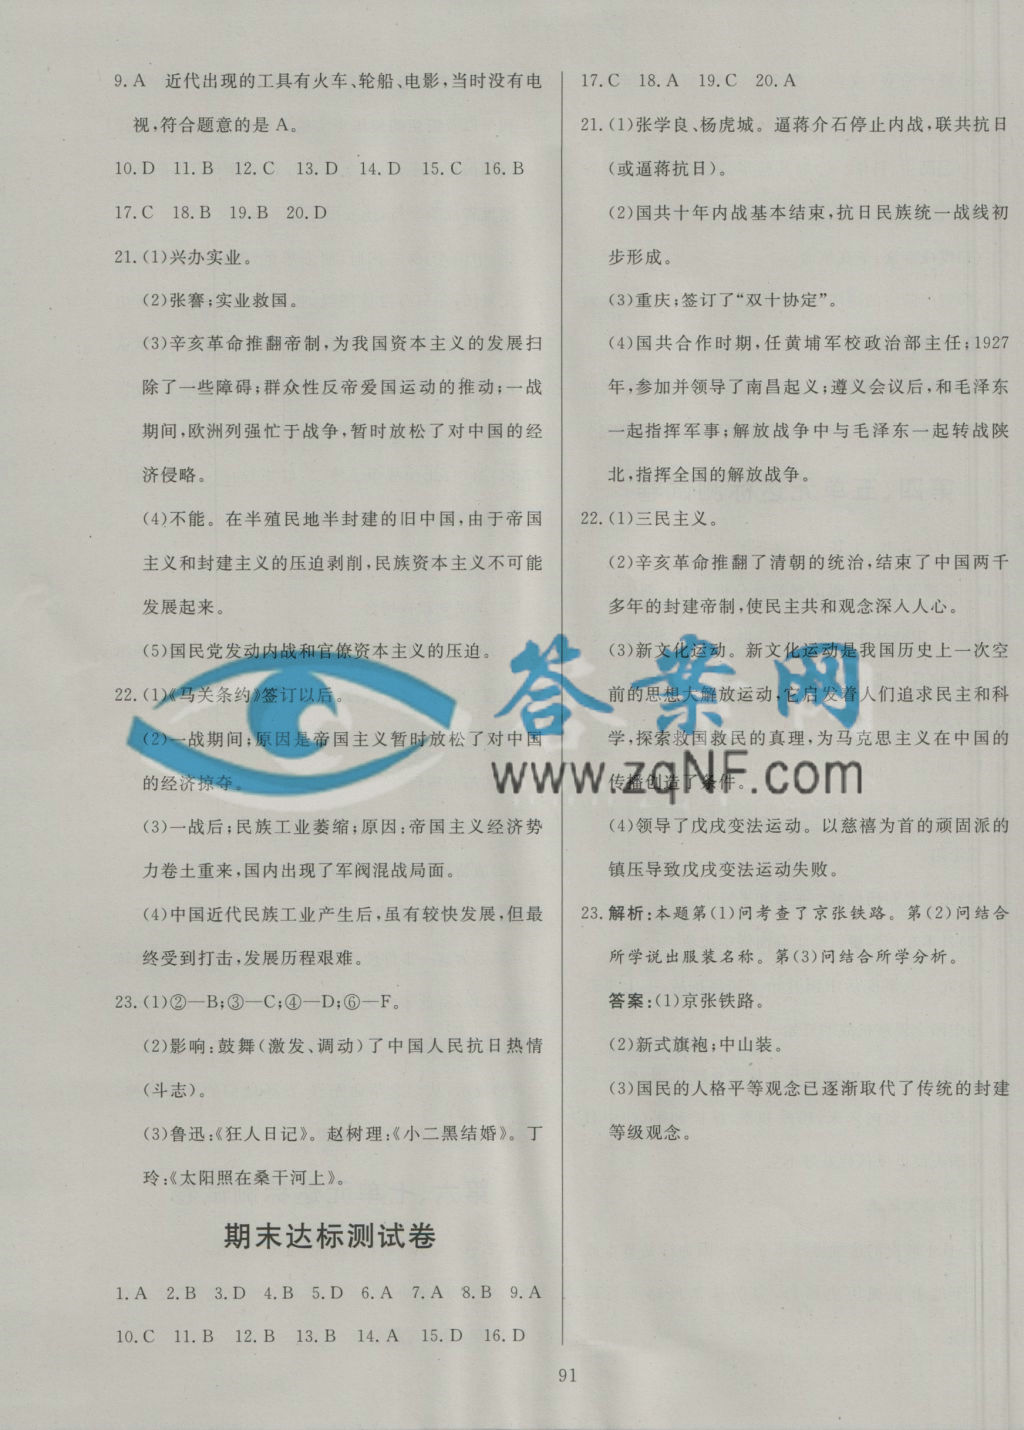 9.A　近代出现的工具有火车、轮船、电影,当时没有电
视,符合题意的是A。
10.D　11.B　12.C　13.D　14.D　15.C　16.B
17.C　18.B　19.B　20.D
21.(1)兴办实业。
(2)张謇;实业救国。
(3)辛亥革命推翻帝制,为我国资本主义的发展扫
除了一些障碍;群众性反帝爱国运动的推动;一战
期间,欧洲列强忙于战争,暂时放松了对中国的经
济侵略。
(4)不能。在半殖民地半封建的旧中国,由于帝国
主义和封建主义的压迫剥削,民族资本主义不可能
发展起来。
(5)国民党发动内战和官僚资本主义的压迫。
22.(1)《马关条约》签订以后。
(2)一战期间;原因是帝国主义暂时放松了对中国
的经济掠夺。
(3)一战后;民族工业萎缩;原因:帝国主义经济势
力卷土重来,国内出现了军阀混战局面。
(4)中国近代民族工业产生后,虽有较快发展,但最
终受到打击,发展历程艰难。
23.(1)②—B;③—C;④—D;⑥—F。
(2)影响:鼓舞(激发、调动)了中国人民抗日热情
(斗志)。
(3)鲁迅:《狂人日记》。赵树理:《小二黑结婚》。丁
玲:《太阳照在桑干河上》。
期末达标测试卷
1.A　2.B　3.D　4.B　5.D　6.A　7.A　8.B　9.A
10.C　11.B　12.B　13.B　14.A　15.D　16.D
17.C　18.A　19.C　20.A
21.(1)张学良、杨虎城。逼蒋介石停止内战,联共抗日
(或逼蒋抗日)。
(2)国共十年内战基本结束,抗日民族统一战线初
步形成。
(3)重庆;签订了“双十协定”。
(4)国共合作时期,任黄埔军校政治部主任;1927
年,参加并领导了南昌起义;遵义会议后,和毛泽东
一起指挥军事;解放战争中与毛泽东一起转战陕
北,指挥全国的解放战争。
22.(1)三民主义。
(2)辛亥革命推翻了清朝的统治,结束了中国两千
多年的封建帝制,使民主共和观念深入人心。
(3)新文化运动。新文化运动是我国历史上一次空
前的思想大解放运动,它启发着人们追求民主和科
学,探索救国救民的真理,为马克思主义在中国的
传播创造了条件。
(4)领导了戊戌变法运动。以慈禧为首的顽固派的
镇压导致戊戌变法运动失败。
23.解析:本题第(1)问考查了京张铁路。第(2)问结合
所学说出服装名称。第(3)问结合所学分析。
答案:(1)京张铁路。
(2)新式旗袍;中山装。
(3)国民的人格平等观念已逐渐取代了传统的封建
等级观念。
答案网
www.zqNF.com
91